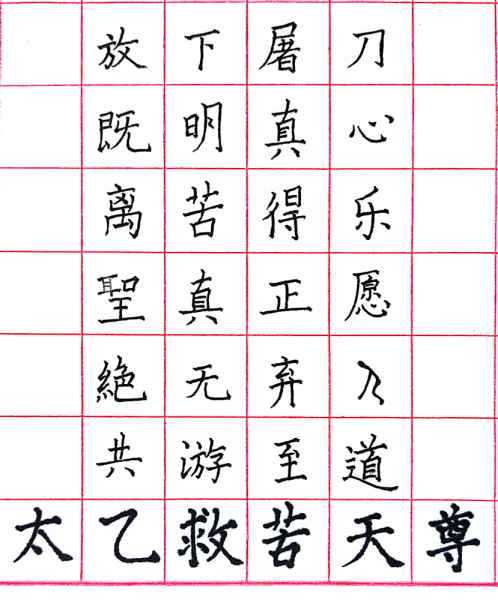 放下屠刀
既明真心
离苦得乐
聖真正愿
絶无弃
共游至道
太乙救苦天尊